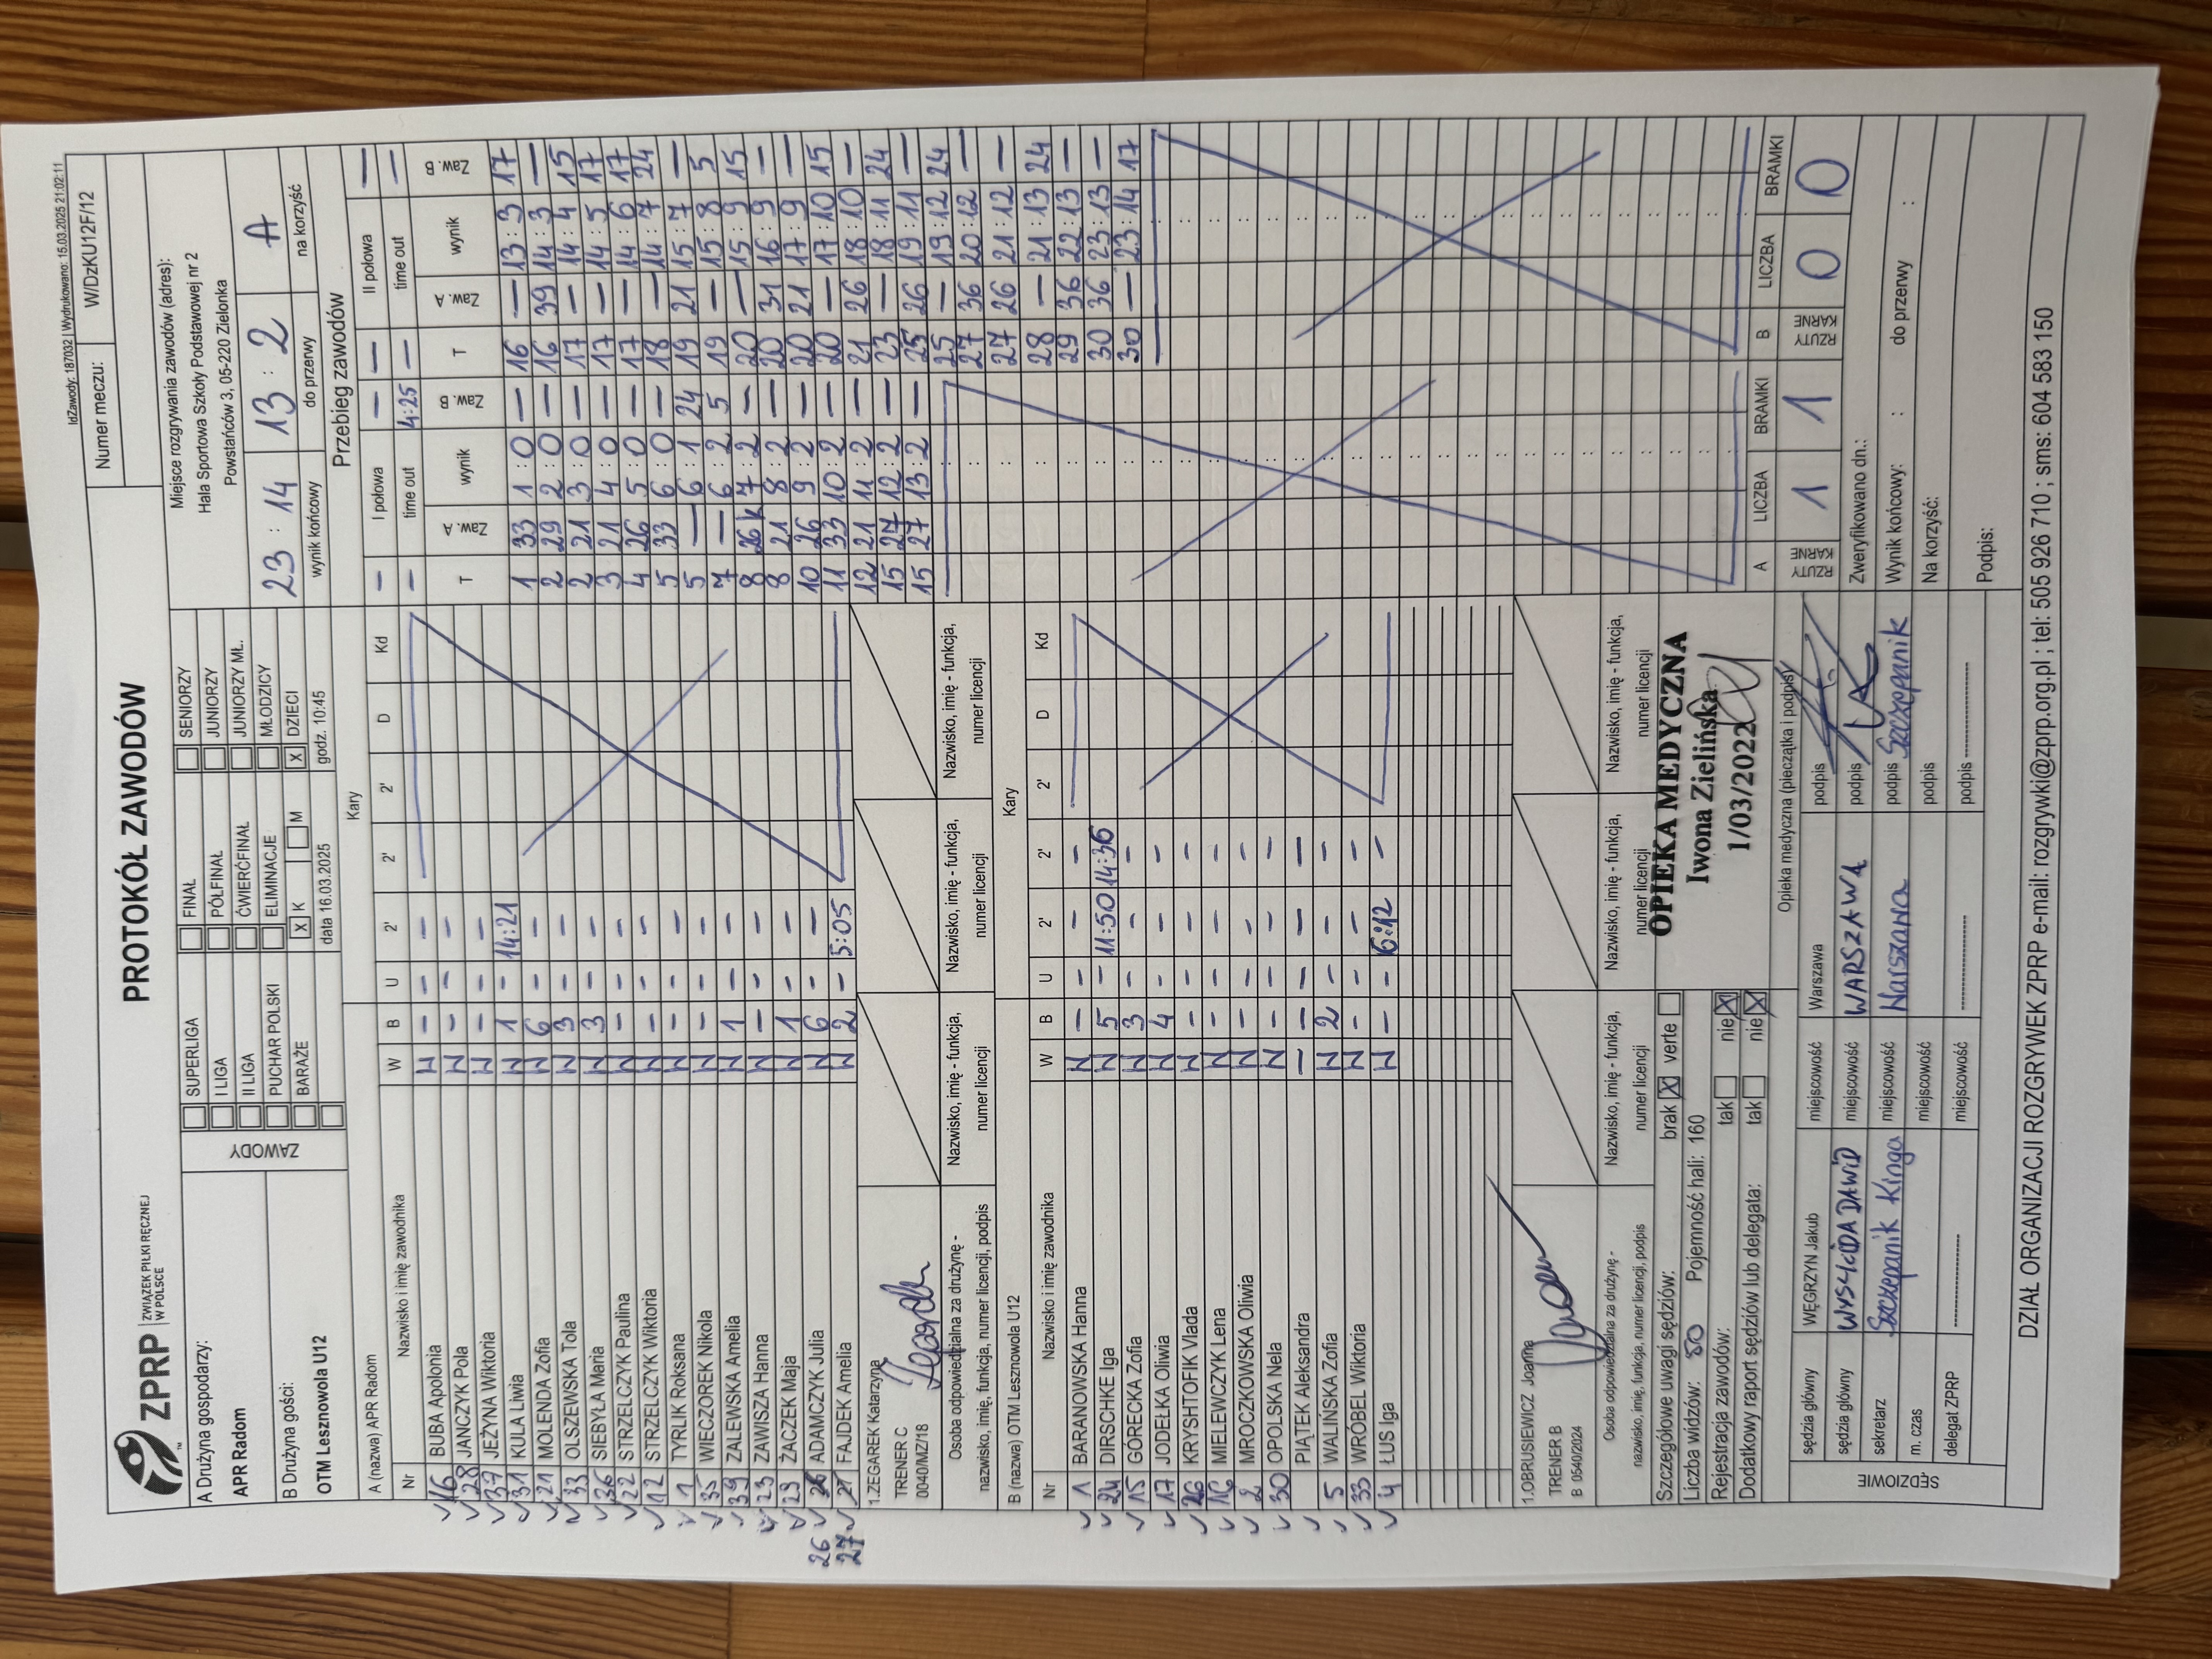 IdZawody: 187032 | Wydrukowano: 15.03.2025 21:02:11
ZPRP ZWIĄZEK PIŁKI RĘCZNEJ W POLSCE
PROTOKÓŁ ZAWODÓW
Numer meczu: W/DzKU12F/12
A Drużyna gospodarzy:
APR Radom
B Drużyna gości:
OTM Lesznowola U12
ZAWODY
SUPERLIGA FINAŁ SENIORZY
I LIGA PÓŁFINAŁ JUNIORZY
II LIGA ĆWIERĆFINAŁ JUNIORZY MŁ.
PUCHAR POLSKI ELIMINACJE MŁODZICY
BARAŻE X K M X DZIECI
data 16.03.2025 godz. 10:45
Miejsce rozgrywania zawodów (adres):
Hala Sportowa Szkoły Podstawowej nr 2
Powstańców 3, 05-220 Zielonka
23 : 14 13 : 2 A
wynik końcowy do przerwy na korzyść
A (nazwa) APR Radom Kary
Nr Nazwisko i imię zawodnika W B U 2' 2' 2' D Kd
16 BUBA Apolonia N - - -
28 JAŃCZYK Pola N - - -
37 JEŻYNA Wiktoria N - - -
31 KULA Liwia N 1 - 14:21
21 MOLENDA Zofia N 6 - -
33 OLSZEWSKA Tola N 3 - -
36 SIEBYŁA Maria N 3 - -
22 STRZELCZYK Paulina N - - -
12 STRZELCZYK Wiktoria N - - -
1 TYRLIK Roksana N - - -
35 WIECZOREK Nikola N - - -
39 ZALEWSKA Amelia N 1 - -
23 ZAWISZA Hanna N - - -
29 ŻACZEK Maja N 1 - -
26 ADAMCZYK Julia N 6 - -
27 FAJDEK Amelia N 2 - 5:05
1.ZEGAREK Katarzyna
TRENER C
0040/MZ/18
Osoba odpowiedzialna za drużynę - nazwisko, imię, funkcja, numer licencji, podpis
Nazwisko, imię - funkcja, numer licencji
Nazwisko, imię - funkcja, numer licencji
Nazwisko, imię - funkcja, numer licencji
B (nazwa) OTM Lesznowola U12 Kary
Nr Nazwisko i imię zawodnika W B U 2' 2' 2' D Kd
1 BARANOWSKA Hanna N - - - -
24 DIRSCHKE Iga N 5 - 11:50 14:36
15 GÓRECKA Zofia N 3 - - -
17 JODEŁKA Oliwia N 4 - - -
26 KRYSHTOFIK Vlada N - - - -
16 MIELEWCZYK Lena N - - - -
2 MROCZKOWSKA Oliwia N - - - -
30 OPOLSKA Nela N - - - -
PIĄTEK Aleksandra - - - - -
5 WALIŃSKA Zofia N 2 - - -
33 WRÓBEL Wiktoria N - - - -
4 ŁUS Iga N - - 6:12 -
1.OBRUSIEWICZ Joanna
TRENER B
B 0540/2024
Osoba odpowiedzialna za drużynę - nazwisko, imię, funkcja, numer licencji, podpis
Nazwisko, imię - funkcja, numer licencji
Nazwisko, imię - funkcja, numer licencji
Nazwisko, imię - funkcja, numer licencji
Szczegółowe uwagi sędziów: brak X verte
Liczba widzów: 80 Pojemność hali: 160
Rejestracja zawodów: tak nie X
Dodatkowy raport sędziów lub delegata: tak nie X
OPIEKA MEDYCZNA
Iwona Zielińska
1/03/2022
Opieka medyczna (pieczątka i podpis)
SĘDZIOWIE
sędzia główny WĘGRZYN Jakub miejscowość Warszawa podpis
sędzia główny WYSŁEIDA DAWID miejscowość WARSZAWA podpis
sekretarz Szczepanik Kinga miejscowość Warszawa podpis Szczepanik
m. czas miejscowość podpis
delegat ZPRP miejscowość podpis
Przebieg zawodów
I połowa - - II połowa - -
time out - 4:25 time out - -
T Zaw. A wynik Zaw. B
1 33 1:0 -
2 29 2:0 -
2 21 3:0 -
3 21 4:0 -
4 26 5:0 -
5 33 6:0 -
5 - 6:1 24
7 - 6:2 5
8 26k 7:2 -
8 21 8:2 -
10 26 9:2 -
11 33 10:2 -
12 21 11:2 -
15 27 12:2 -
15 27 13:2 -
T Zaw. A wynik Zaw. B
16 - 13:3 17
16 39 14:3 -
17 - 14:4 15
17 - 14:5 17
17 - 14:6 17
18 - 14:7 24
19 21 15:7 -
19 - 15:8 5
20 - 15:9 15
20 31 16:9 -
20 21 17:9 -
20 - 17:10 15
21 26 18:10 -
23 - 18:11 24
25 26 19:11 -
25 - 19:12 24
27 36 20:12 -
27 26 21:12 -
28 - 21:13 24
29 36 22:13 -
30 36 23:13 -
30 - 23:14 17
A RZUTY KARNE LICZBA 1 BRAMKI 1
B RZUTY KARNE LICZBA 0 BRAMKI 0
Zweryfikowano dn.:
Wynik końcowy: : do przerwy :
Na korzyść:
Podpis:
DZIAŁ ORGANIZACJI ROZGRYWEK ZPRP e-mail: rozgrywki@zprp.org.pl ; tel: 505 926 710 ; sms: 604 583 150